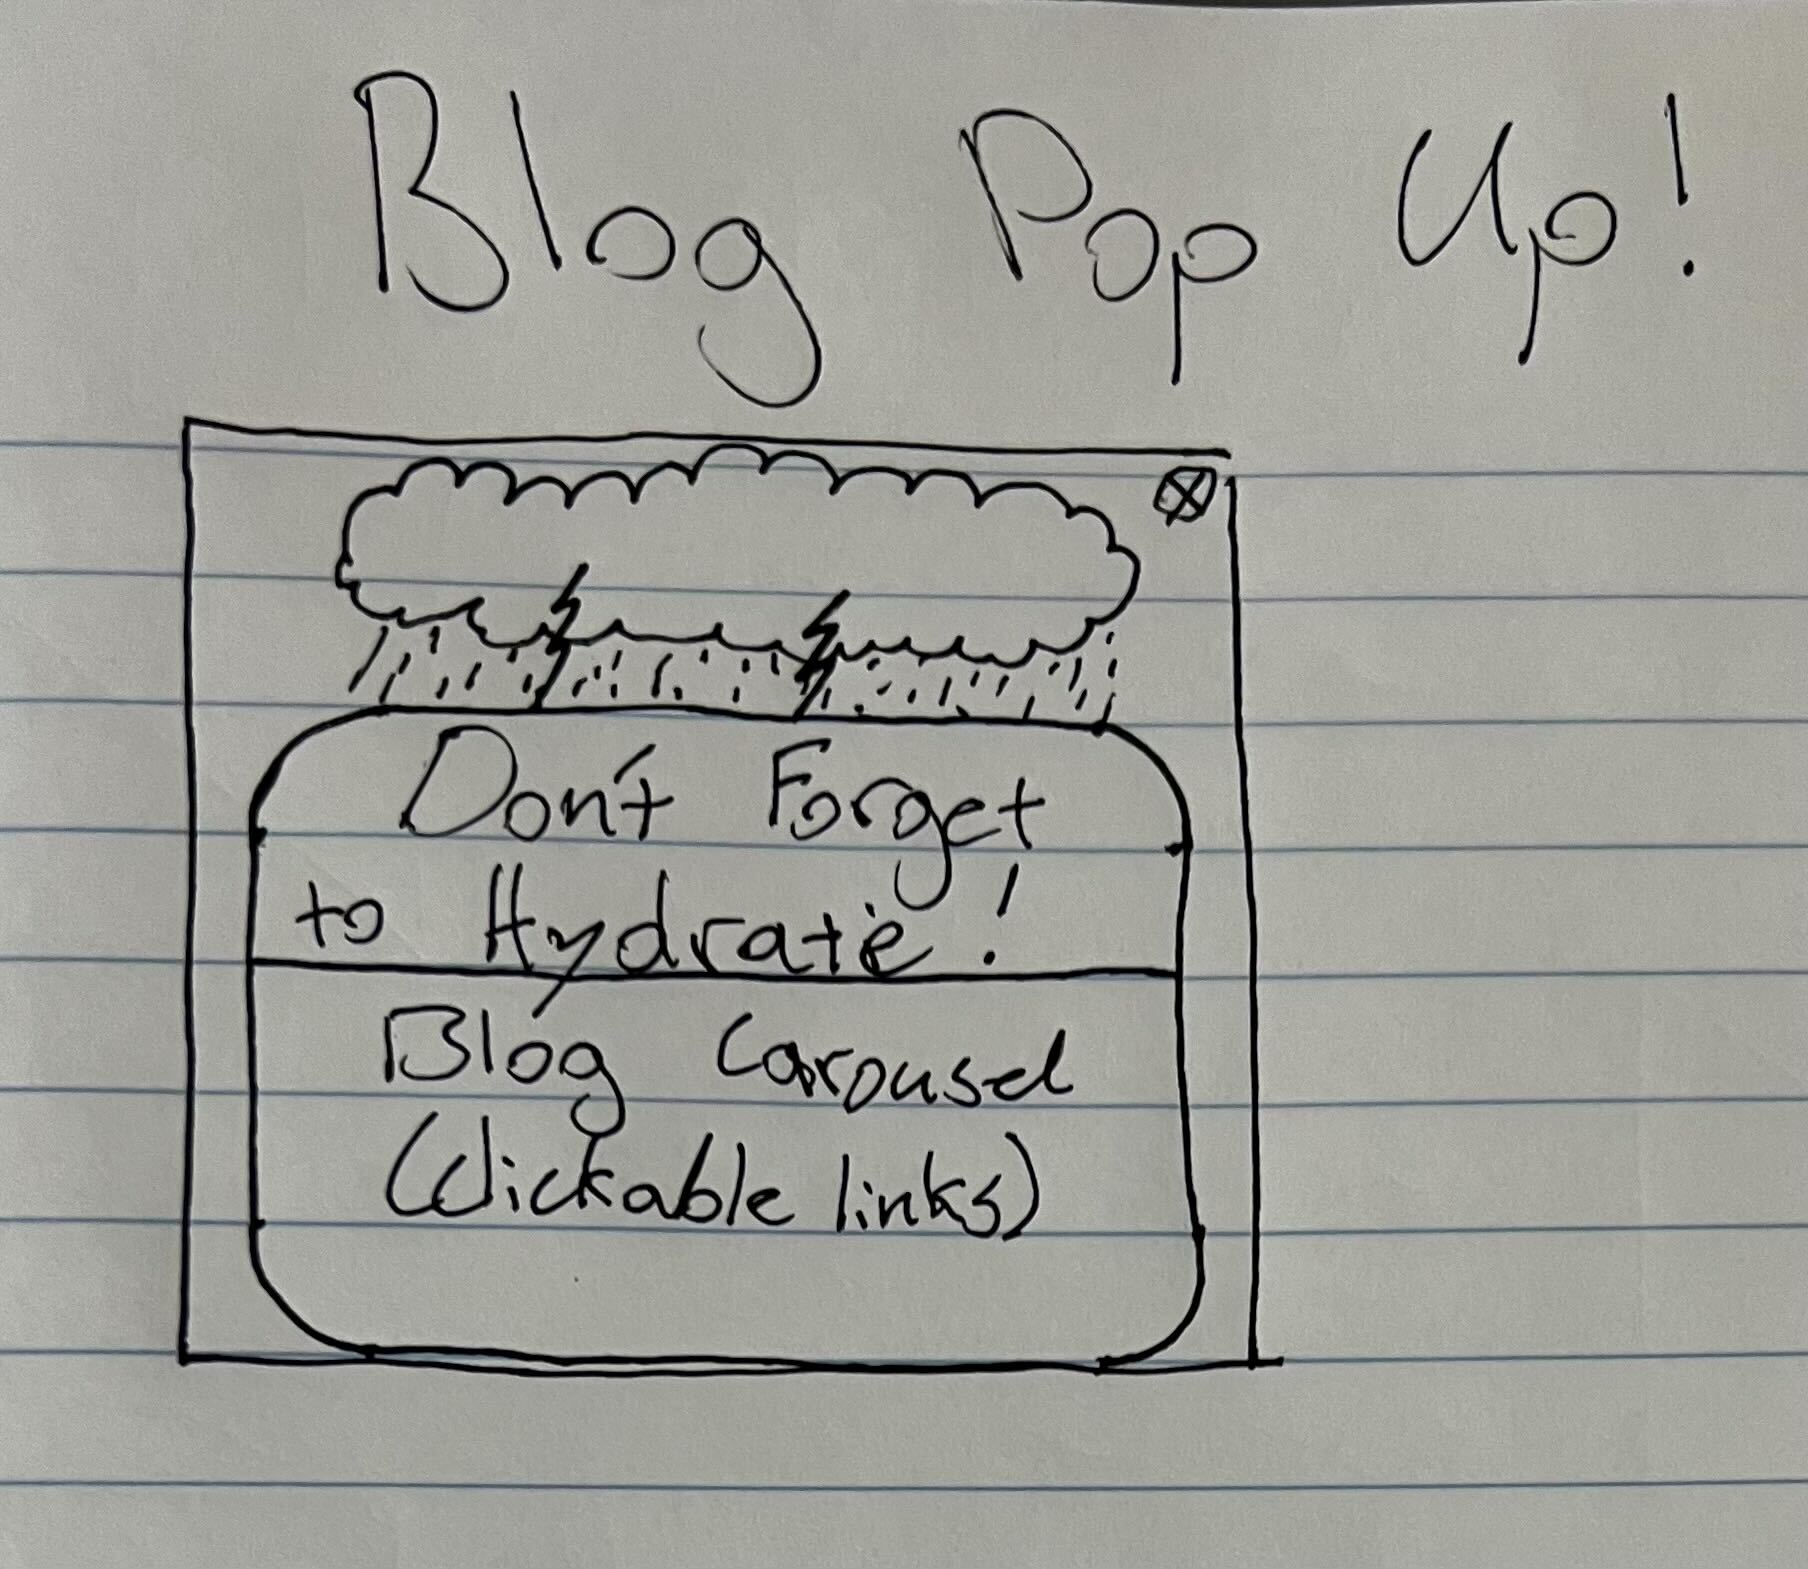 Blog Pop Up!
Don't Forget
to Hydrate!
Blog Carousel
(Clickable links)